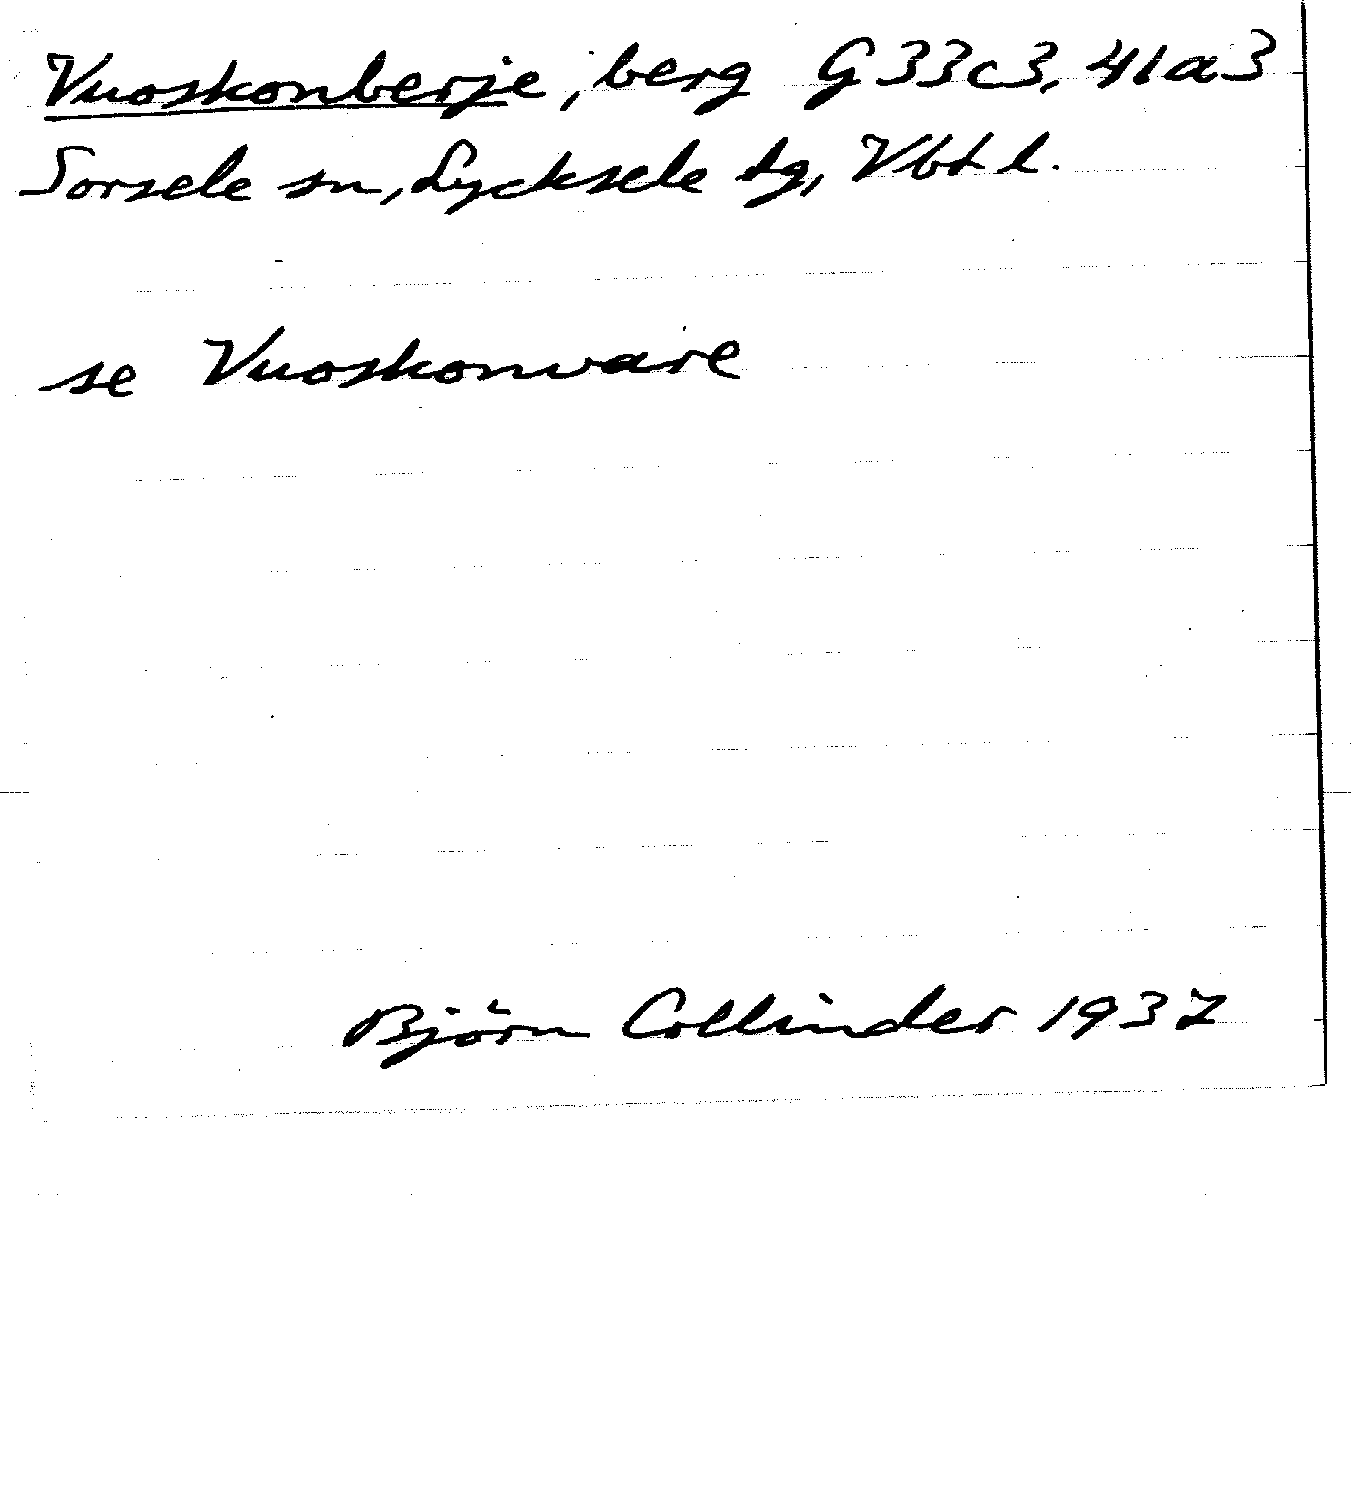 Vuoskonberje, berg G 33c3, 41a3
Sorsele sn, Lycksele tg, Vbt l.
se Vuoskonvare
Björn Collinder 1937